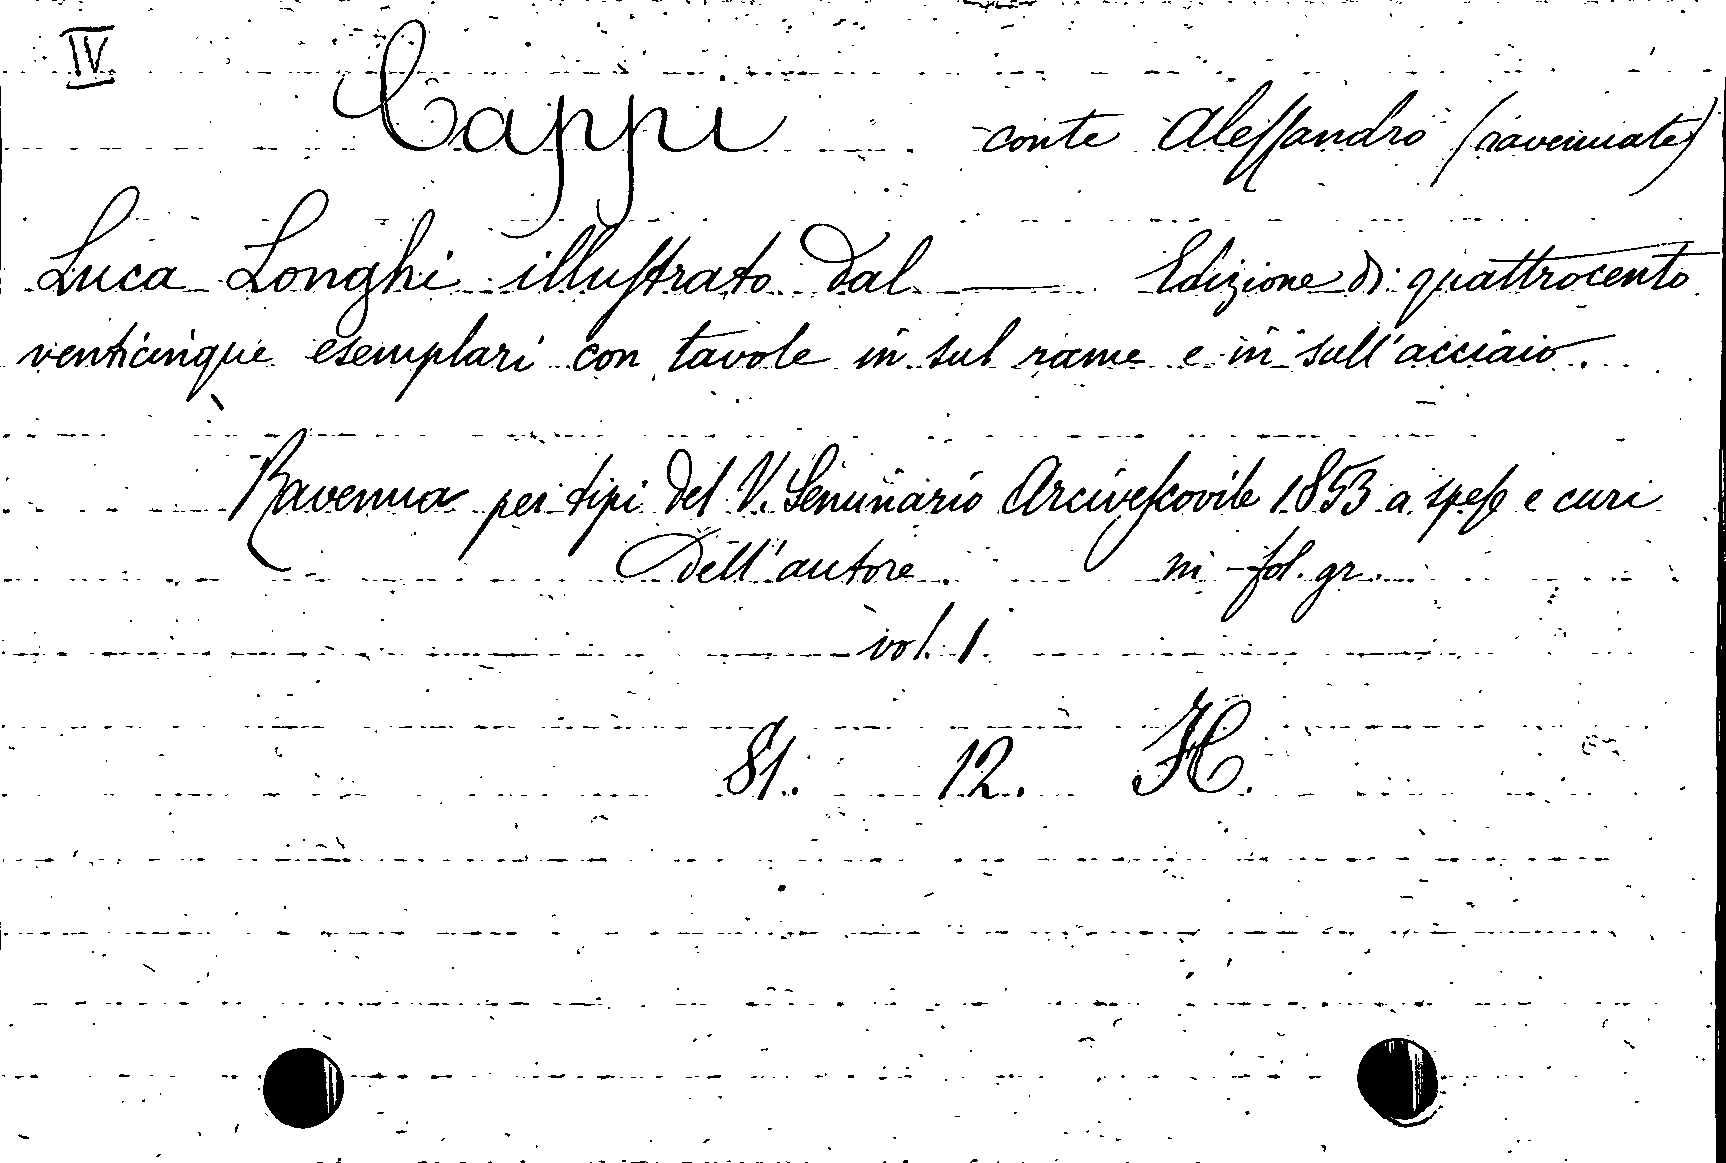 IV
Cappi conte Alessandro (ravennate)
Luca Longhi illustrato dal — Edizione di quattrocento
venticinque esemplari con tavole in sul rame e in sull'acciaio.
Ravenna pei tipi del V. Seminario Arcivescovile 1853 a spese e curi
dell'autore. in fol. gr.
vol. 1.
81. 12. H.